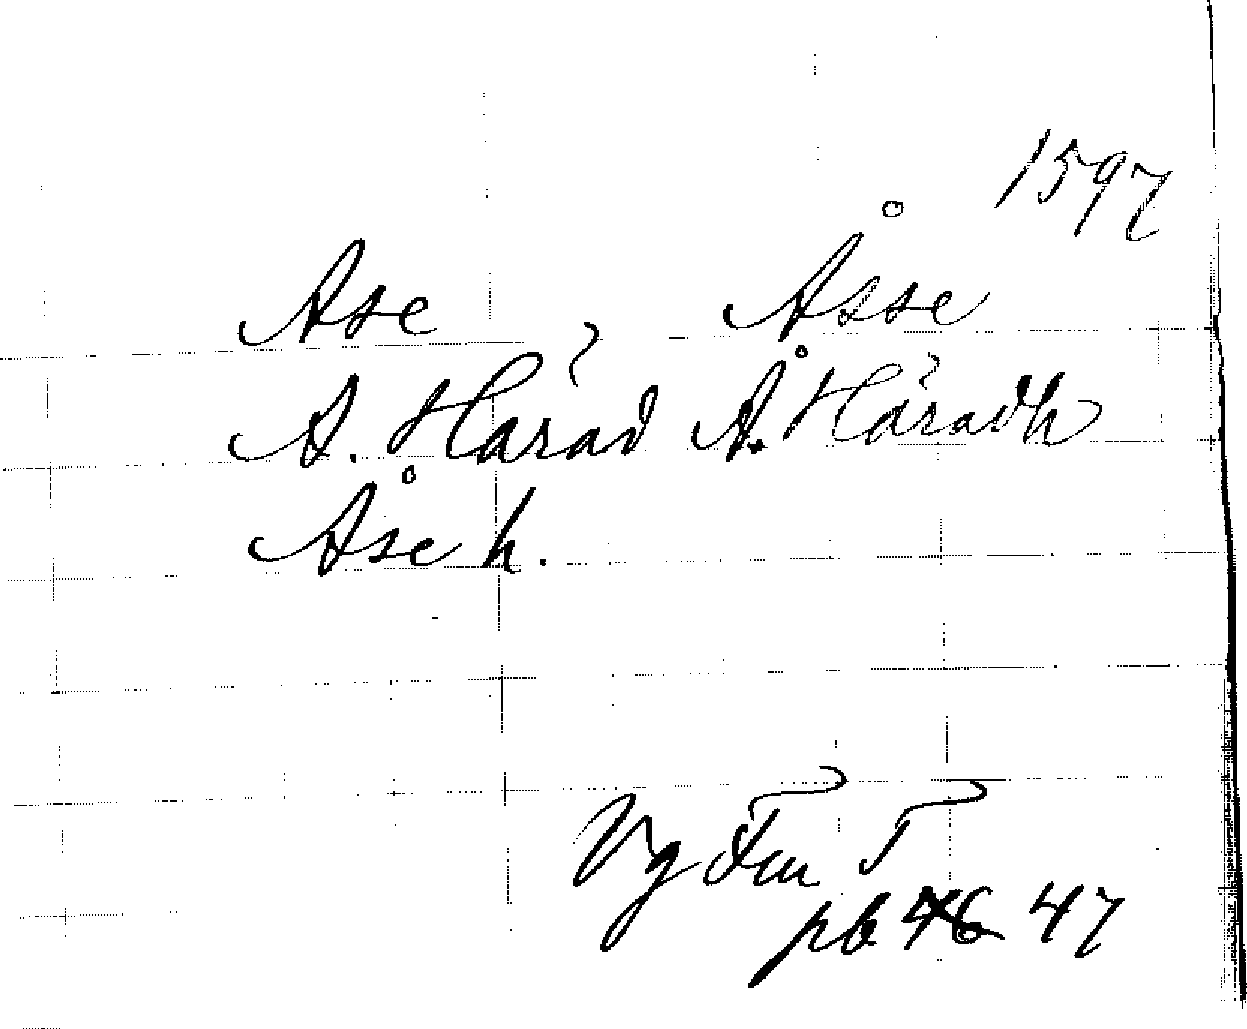 1597
Ase Åsse
A. Hărad Å. Hăradh
Åse h.
Vg Fm T
pb 46 47